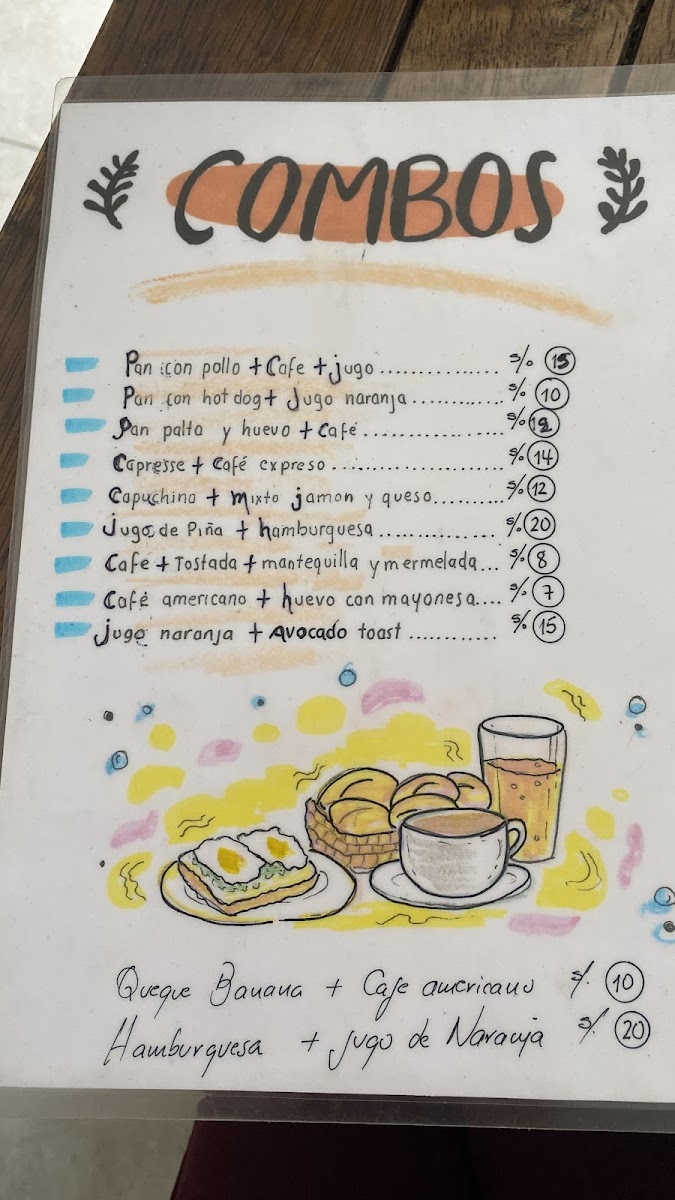 COMBOS
Pan con pollo + Cafe + jugo ............... s/o 15
Pan con hot dog + Jugo naranja ........... s/o 10
Pan palta y huevo + café ................. s/o 12
Capresse + café expreso ....................... s/o 14
Capuchino + mixto jamon y queso ......... s/o 12
Jugo de Piña + hamburguesa ............... s/o 20
Café + Tostada + mantequilla y mermelada ... s/o 8
Café americano + huevo con mayonesa .... s/o 7
jugo naranja + Avocado toast ........... s/o 15
Queque Banana + Cafe americano s/. 10
Hamburguesa + jugo de Naranja s/. 20